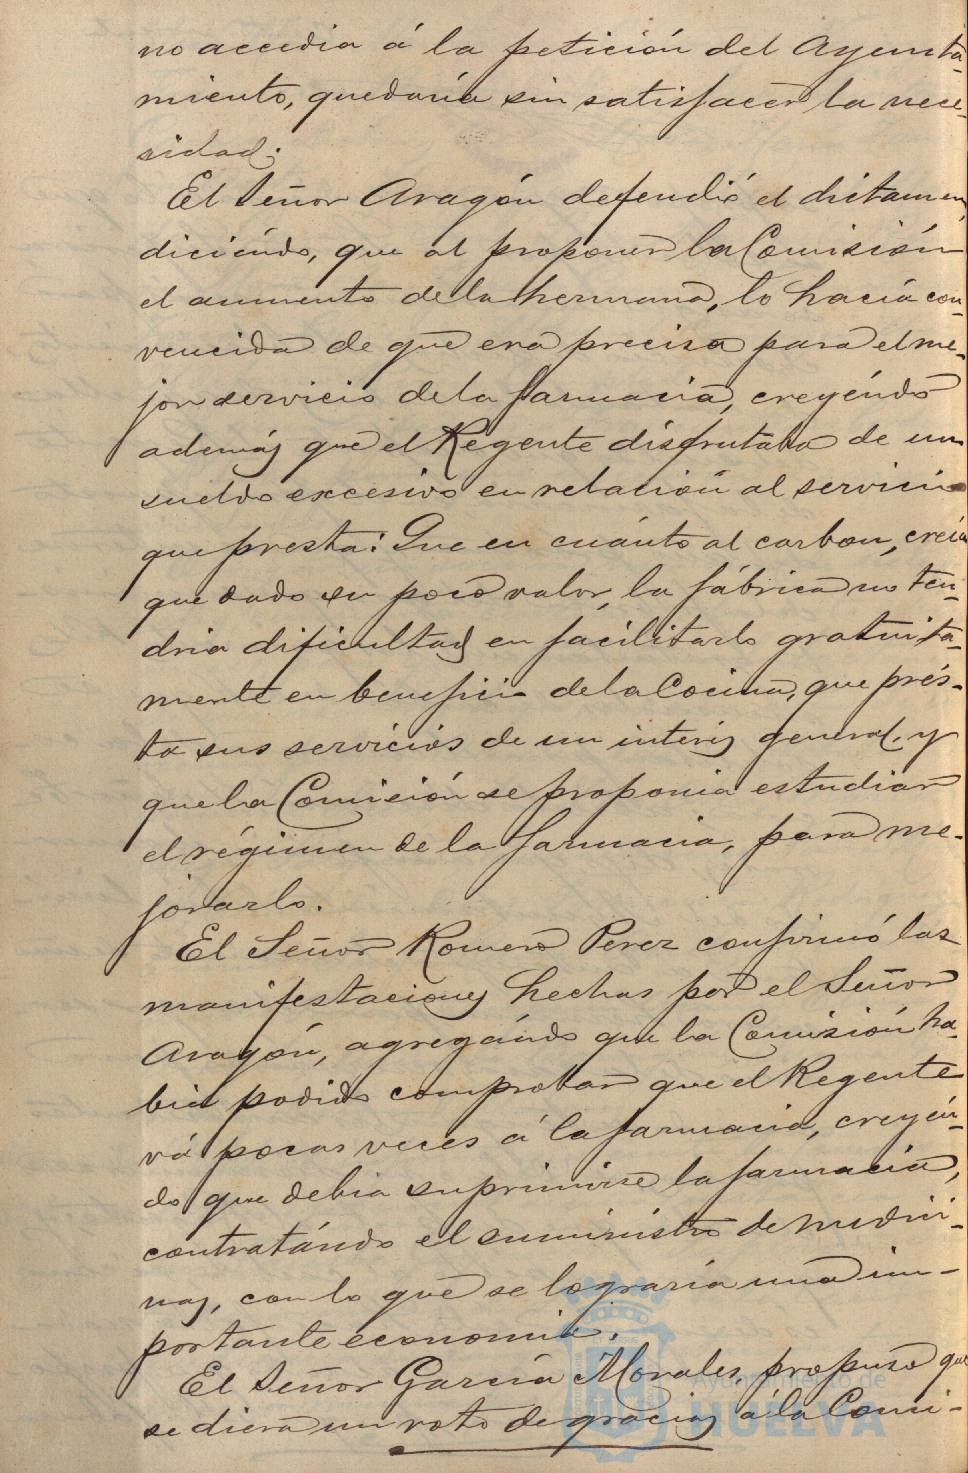 no accedia á la petición del Ayunta-
miento, quedaría sin satisfacer la nece-
sidad.
El Señor Aragón defendió el dictamen,
diciéndo, que al proponer la Comisión
el aumento de la hermana, lo hacía con-
vencida de que era preciso para el me-
jor servicio de la farmacia, creyéndo
además que el Regente disfrutaba de un
sueldo excesivo en relación al servicio
que presta: Que en cuánto al carbon, creía
que dado su poco valor, la fábrica no ten-
dria dificultad en facilitarlo gratuita-
mente en beneficio de la Cocina, que prés-
ta sus servicios de un interés general, y
que la Comisión se proponia estudiar
el régimen de la farmacia, para me-
jorarlo.
El Señor Romero Perez confirmó las
manifestaciones hechas por el Señor
Aragón, agregándo que la Comisión ha-
bia podido comprobar que el Regente
vá pocas veces á la farmacia, creyén-
do que debia suprimirse la farmacia,
contratándo el suministro de medici-
nas, con lo que se lograría una im-
portante economia.
El Señor García Morales, propuso que
se diera un voto de gracias á la Comi-
Ayuntamiento de
HUELVA